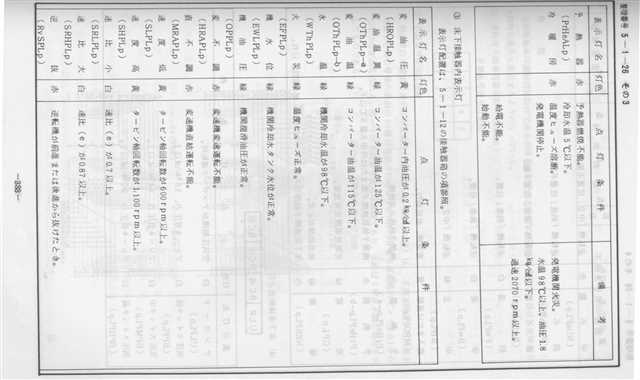 整理番号 5－1－26 その3
表示灯名 灯色 点灯条件 備考
予熱器 赤 予熱器燃焼不能。 発電機関火災。
(PrHeALp) 冷却水温5℃以下。 水温98℃以上、油圧1.8
kg/cd以下。
温度ヒューズ溶断。 過速2070rpm以上。
冷暖房 赤 発電機関停止。
給電不能。
始動不能。
③ 床下接触器内表示灯
表示灯配置は、5－1－12の接触器箱の項参照。
表示灯名 灯色 点灯条件
変油圧 黄 コンバーター内油圧が0.2kg/cd以上。
(HROPLp)
変油温異 緑 コンバーター油温が125℃以下。
(OThPLp-a)
変油温 緑 コンバーター油温が115℃以下。
(OThPLp-b)
水温 緑 機関冷却水が98℃以下。
(WThPLp)
火災 緑 温度ヒューズ正常。
(EFPLp)
機水位 緑 機関冷却水タンク水位が正常。
(EWLPLp)
機油圧 緑 機関潤滑油圧が正常。
(OPPLp)
変不調 赤 変速機変速運転不能。
(HRAPLp)
直不調 赤 変速機直結運転不能。
(MRAPLp)
速度低 黄 タービン軸回転数が600rpm以上。
(SLPLp)
速度高 黄 タービン軸回転数が1,100rpm以上。
(SHPLp)
速比小 白 速比(e)が0.7以上。
(SRLPLp)
速比大 白 速比(e)が0.87以上。
(SRHPLp)
逆抜 赤 逆転機が前進または後進から抜けたとき。
(RvSPLp)
―388―